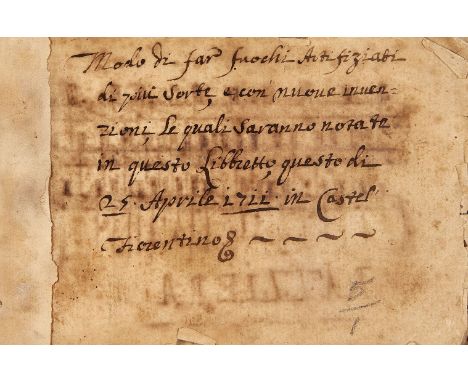 Modo di far fuochi Artifiziati
di più Sorte, e con nuove inven-
zioni, Le quali Saranno notate
in questo Libbretto, questo di
25. Aprile 1711. in Castel
Fiorentino ~ ~ ~ ~
5
1